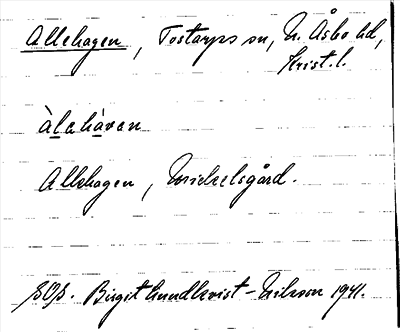 Allehagen, Tostarps sn, N. Åsbo hd,
Krist. l.
àlahàvan
Allehagen, Enickelsgård.
SOS. Birgit Lundkvist-Eriksson 1941.